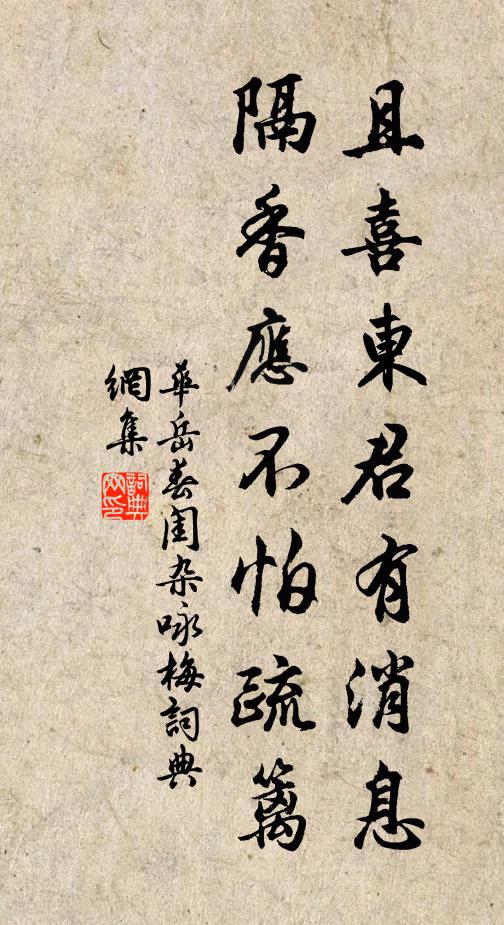 且喜東君有消息
隔香應不怕疏篱
華岳春閨杂咏梅詞典
網集
詞典
网印